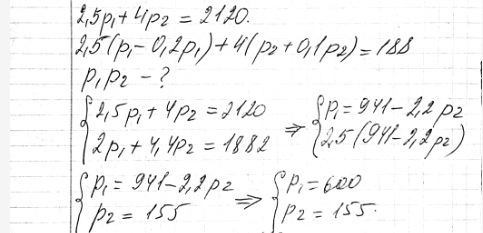 2,5p₁+4p₂=2120.
2,5(p₁-0,2p₁)+4(p₂+0,1p₂)=188
p₁p₂-?
{2,5p₁+4p₂=2120 ⇒ {p₁=941-2,2p₂
2p₁+4,4p₂=1882 2,5(941-2,2p₂)
{p₁=941-2,2p₂ ⇒ {p₁=600
p₂=155 p₂=155.